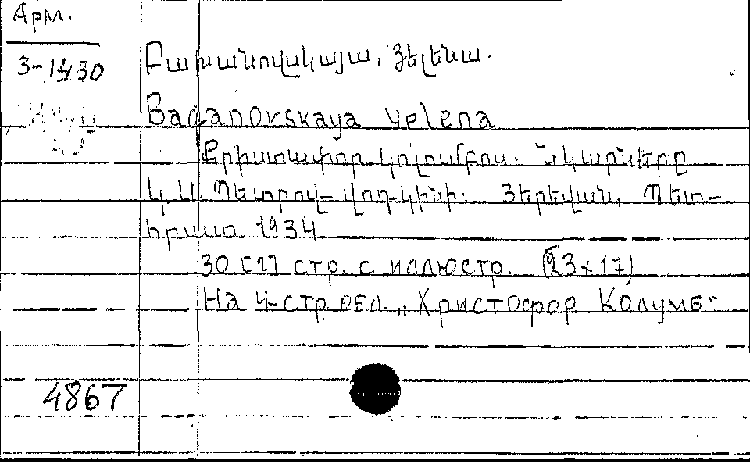 Арм.
3-1430
Բախանովսկայա, Յելենա.
Baganovskaya Yelena
Քրիստափոր Կոլումբոս. Նկարները
Կ.Ս. Պետրով-Վոդկինի. Յերեվան, Պետ-
հրատ 1934
30 [2] стр. с иллюстр. (23x17)
На 4-стр обл. „Христофор Колумб"
4867